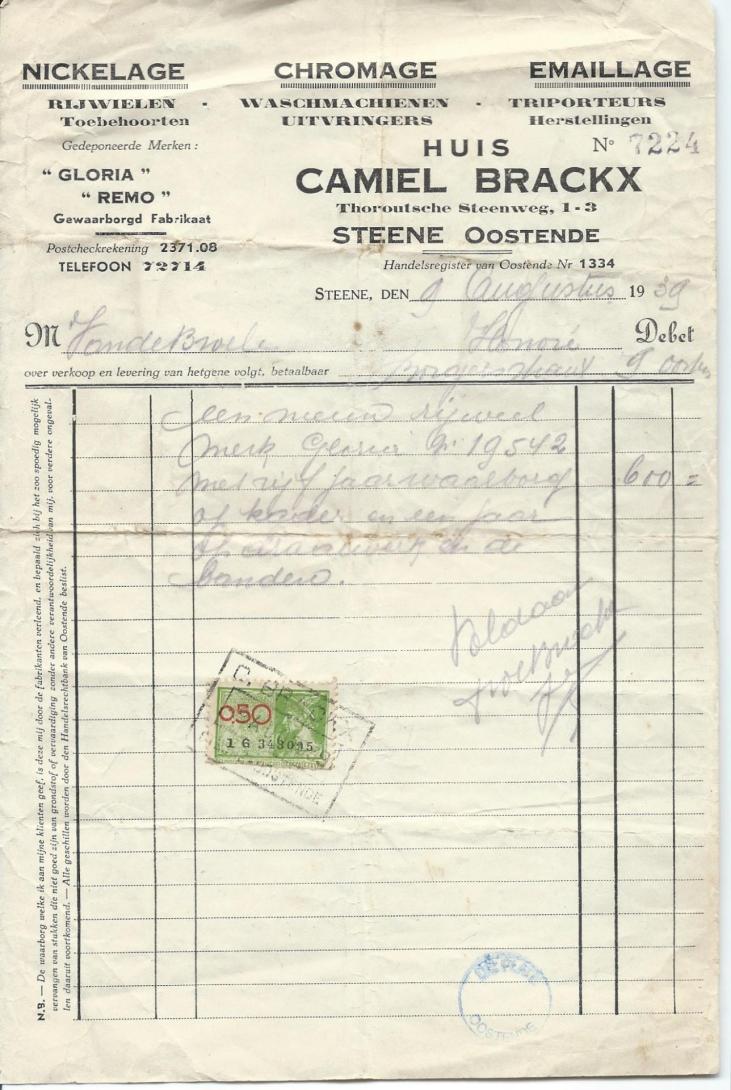 NICKELAGE CHROMAGE EMAILLAGE
RIJWIELEN - WASCHMACHIENEN - TRIPORTEURS
Toebehoorten UITVRINGERS Herstellingen
Gedeponeerde Merken :
HUIS Nº 7224
" GLORIA "
" REMO "
CAMIEL BRACKX
Gewaarborgd Fabrikaat
Thoroutsche Steenweg, 1-3
STEENE OOSTENDE
Postcheckrekening 2371.08
TELEFOON 72714
Handelsregister van Oostende Nr 1334
STEENE, DEN 9 Augustus 1939
M Honoré Debet
over verkoop en levering van hetgene volgt, betaalbaar
een nieuw rijwiel
merk Gloria Nr 19542
met vijf jaar waarborg 600 =
op kader en een jaar
op de
banden.
Voldaan
C. BRACKX
0.50
1 G 348095
OOSTENDE
OOSTENDE
N.B. — De waarborg welke ik aan mijne klienten geef, is deze mij door de fabrikanten verleend, en bepaald zich bij het zoo spoedig mogelijk
vervangen van stukken die niet goed zijn van grondstof of vervaardiging zonder andere verantwoordelijkheid van mij, voor verdere ongeval-
len daaruit voortkomend. — Alle geschillen worden door den Handelsrechtbank van Oostende beslist.